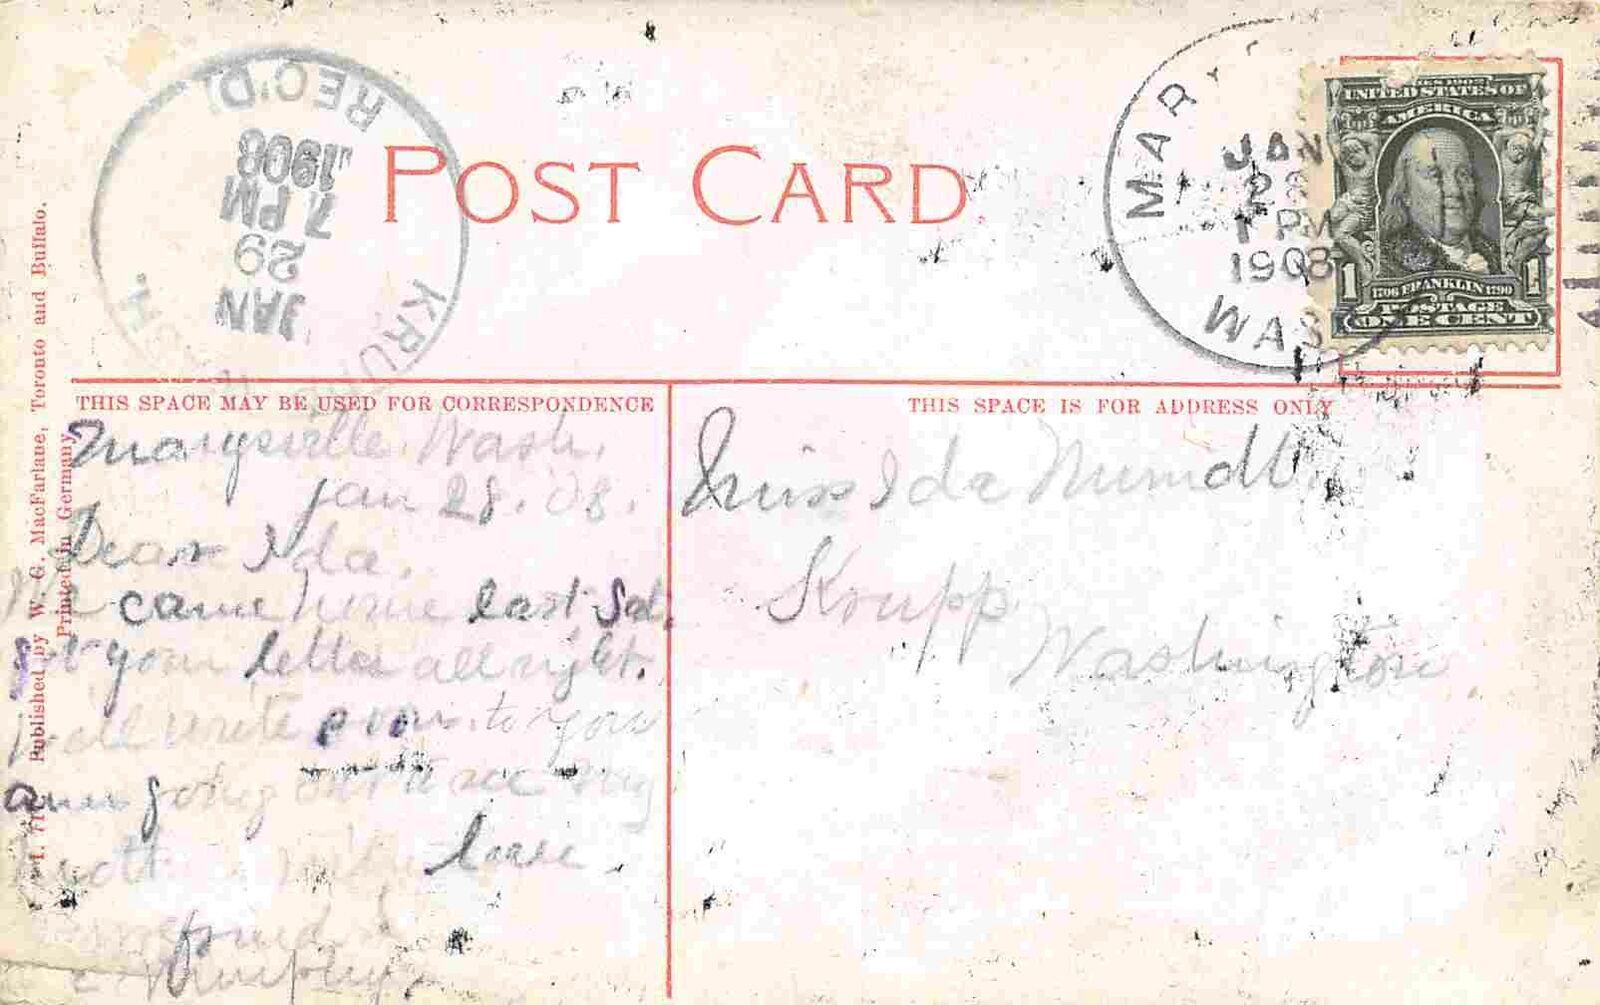 REC'D.
JAN
29
7 PM
1908
KRUPP
POST CARD
MARY
JAN
28
1 PM
1908
WAS
SERIES 1902
UNITED STATES OF
AMERICA
1 1
1706 FRANKLIN 1790
POSTAGE
ONE CENT
Published by W. G. MacFarlane, Toronto and Buffalo.
Printed in Germany
THIS SPACE MAY BE USED FOR CORRESPONDENCE
Marysville Wash.
Jan 28. 08.
Dear Ida.
We came home last Sat.
got your letter all right.
will write soon to you
am going out to see my
love.
friend
Murphy
THIS SPACE IS FOR ADDRESS ONLY
Miss Ida
Krupp
Washington